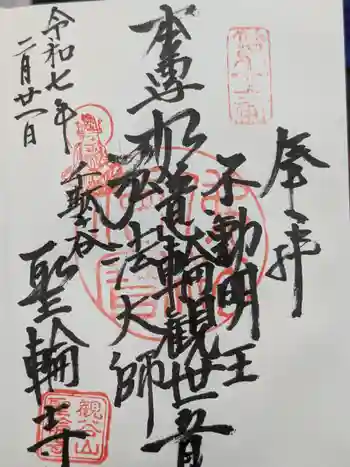 奉拝
不動明王
本尊如意輪観世音
弘法大師
聖谷
聖輪寺
令和七年
二月廿一日
観谷山
聖輪寺